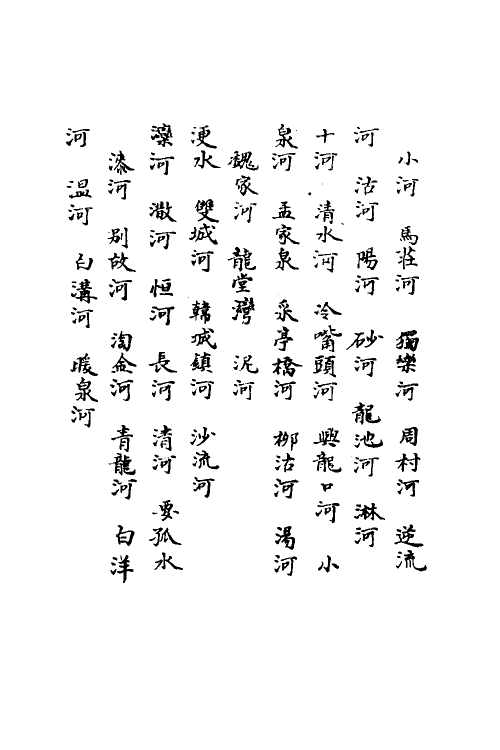 小河　馬莊河　獨樂河　周村河　逆流
河　沽河　陽河　砂河　龍池河　淋河
十河　清水河　冷嘴頭河　興龍口河　小
泉河　孟家泉　采亭橋河　柳沽河　湯河
魏家河　龍堂灣　泥河
浭水　雙城河　韓城鎮河　沙流河
灤河　潵河　恒河　長河　清河　要孤水
漆河　別故河　淘金河　青龍河　白洋
河　溫河　白溝河　暖泉河